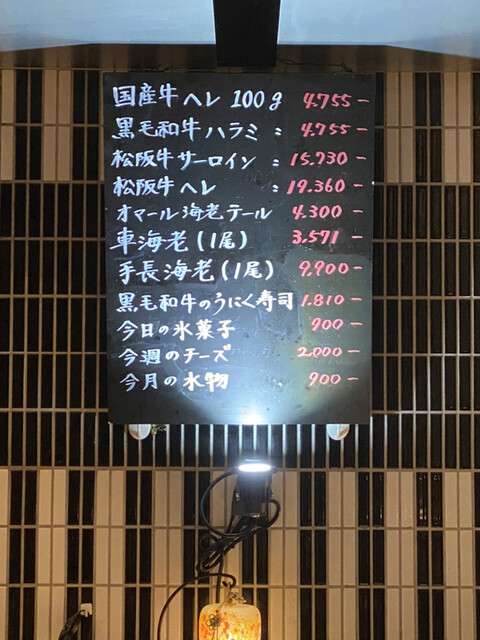 国産牛ヘレ 100g 4.755-
黒毛和牛ハラミ : 4.755-
松阪牛サーロイン : 15.730-
松阪牛ヘレ : 19.360-
オマール海老テール 4.300-
車海老(1尾) 3.571-
手長海老(1尾) 9.900-
黒毛和牛のうにく寿司 1.810-
今日の氷菓子 900-
今週のチーズ 2.000-
今月の水物 900-